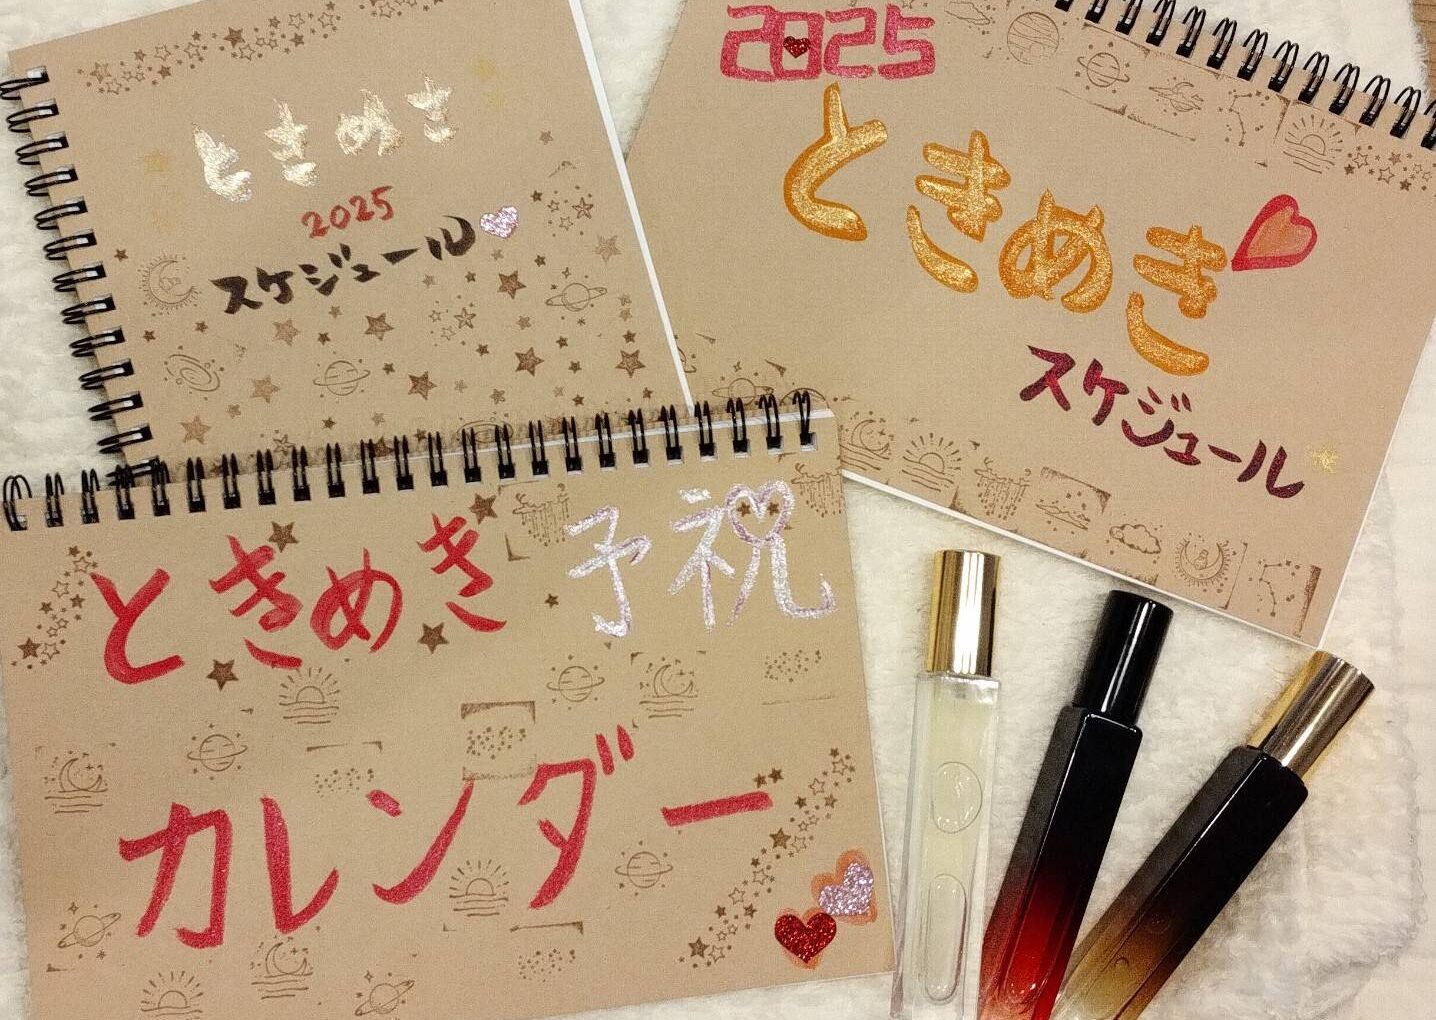 ときめき
2025
スケジュール
2025
ときめき
スケジュール
ときめき予祝
カレンダー